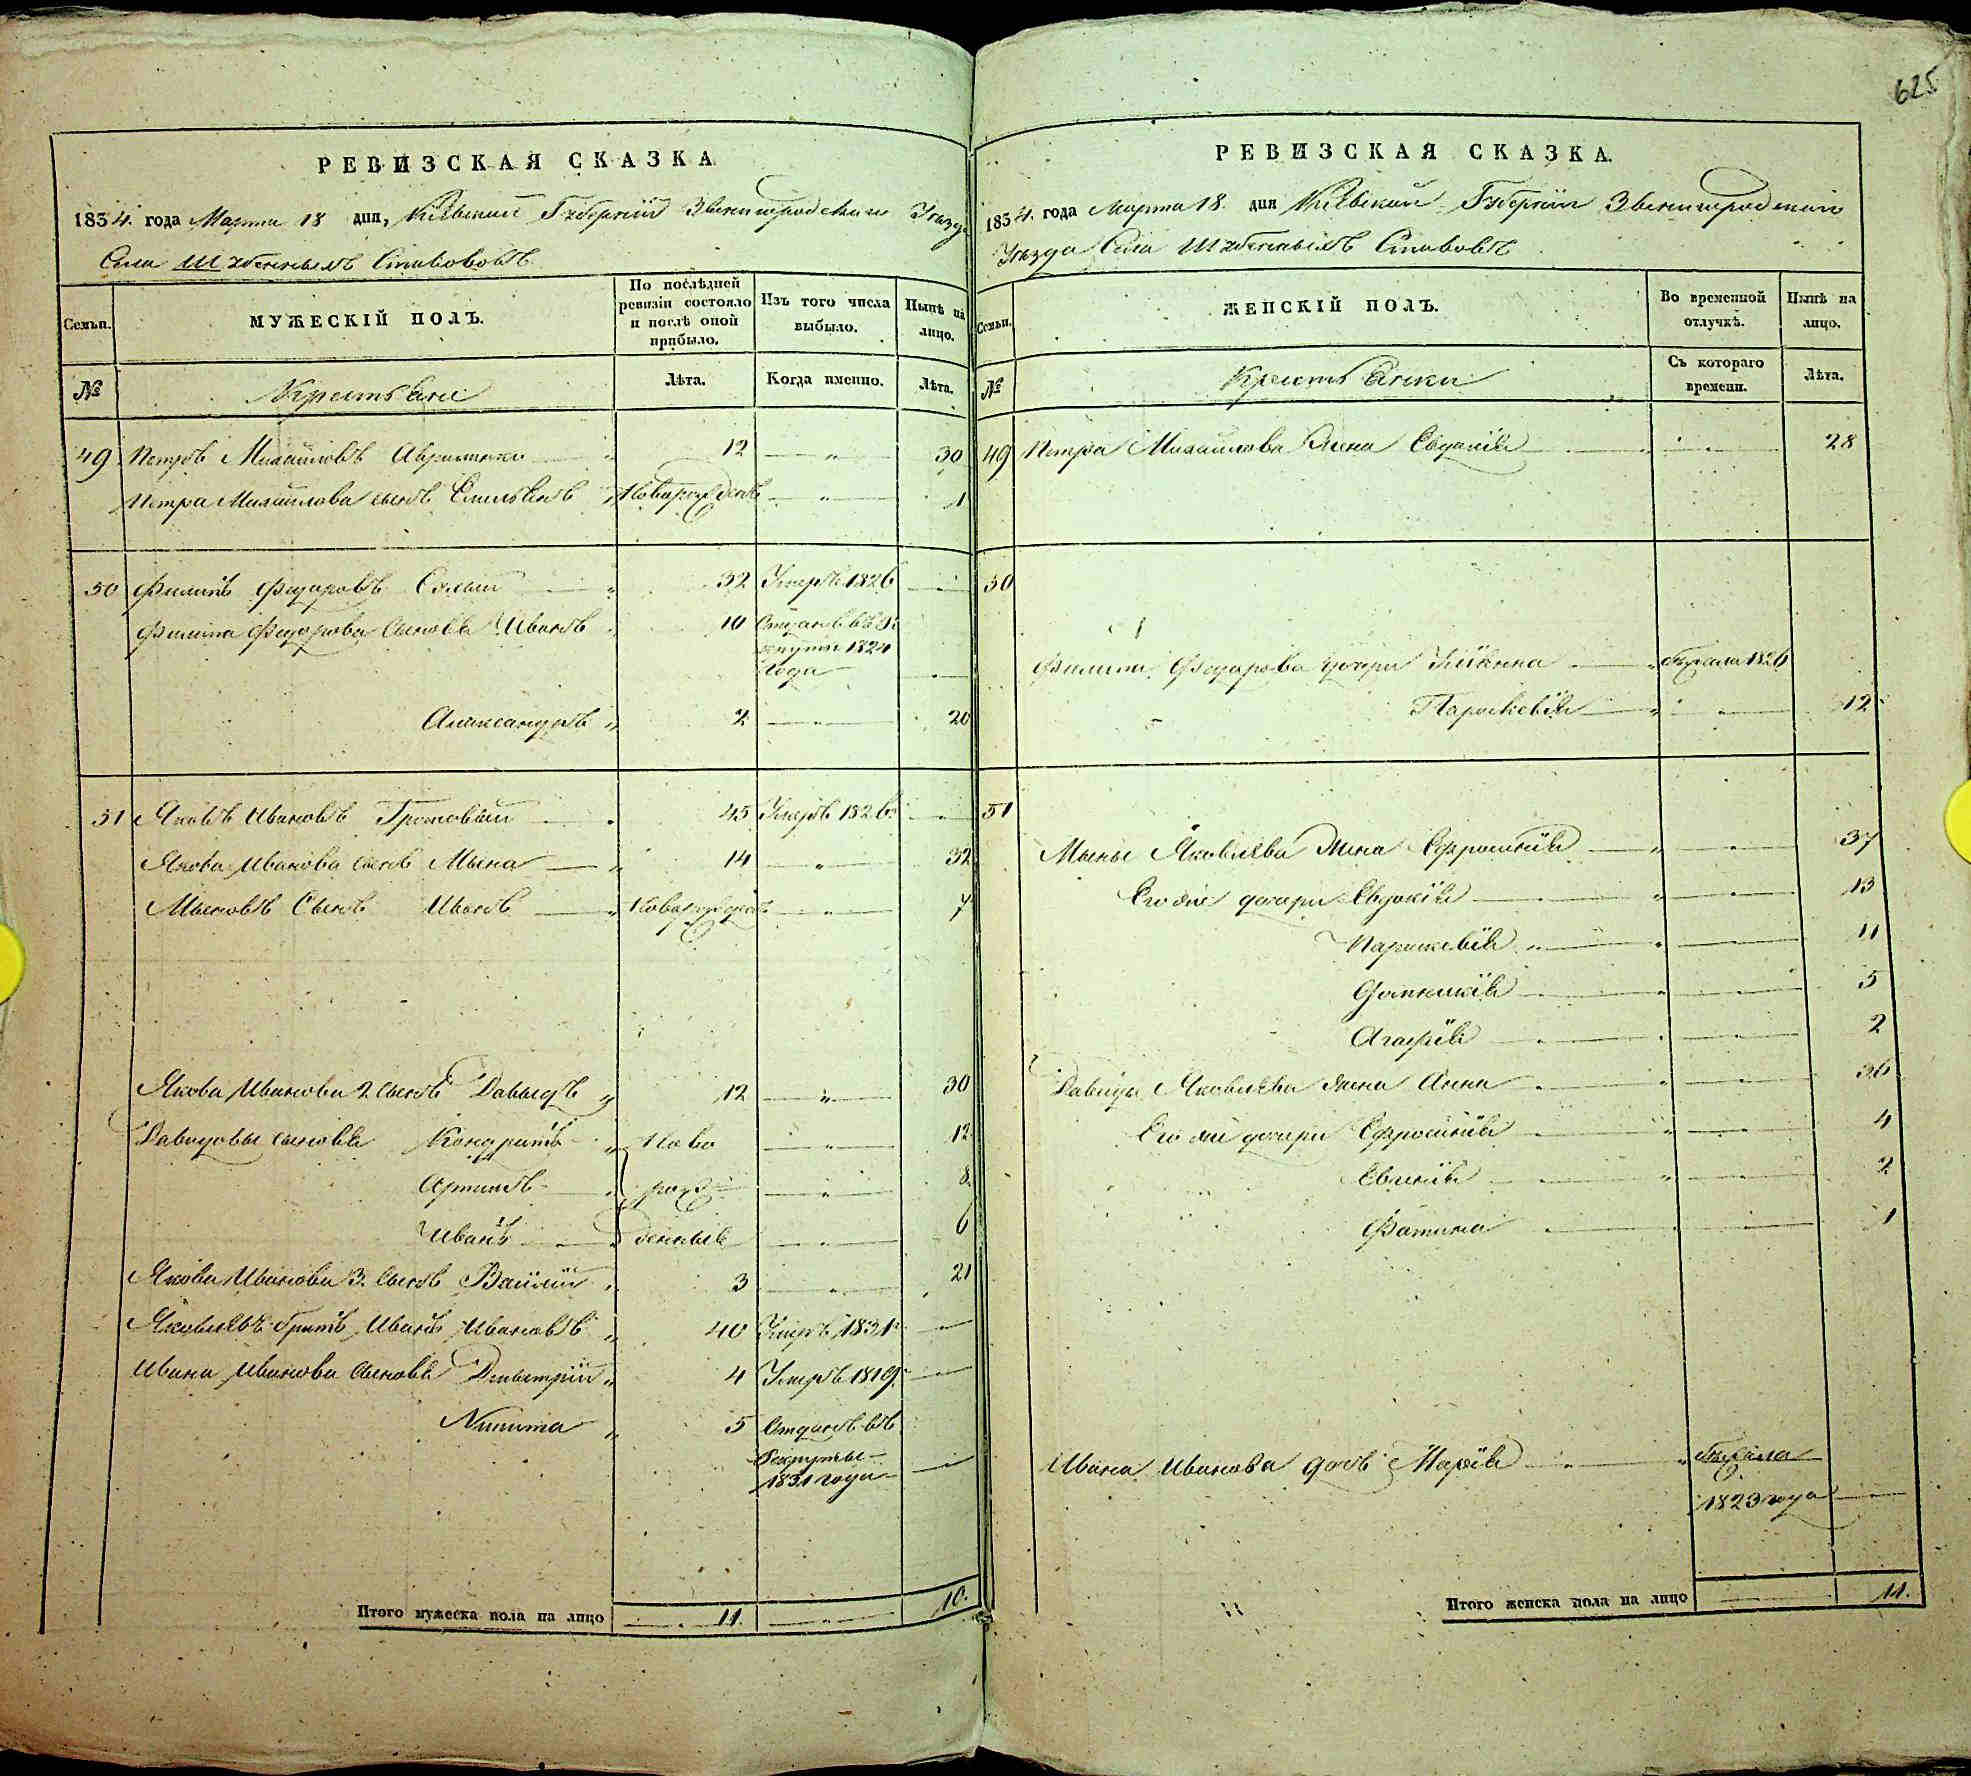 625
РЕВИЗСКАЯ СКАЗКА
1834. года Марта 18 дня, Кіевской Губерніи Звенигородскаго Уезда
Села Шубенныхъ Ставовъ
Семьи.
МУЖЕСКІЙ ПОЛЪ.
По послѣдней ревизіи состояло и послѣ оной прибыло.
Изъ того числа выбыло.
Нынѣ на лицо.
№
Крестьяне
Лѣта.
Когда именно.
Лѣта.
49 Петръ Михайловъ 12 — „ — 30
Петра Михайлова сынъ Емельянъ „ Новорожденъ — „ — 1
50 Филипъ Федоровъ 32 Умеръ 1826 —
Филипа Федорова сыновья Иванъ „ 10 Отданъ въ Рекруты 1824 года —
Александръ „ 2 — „ — 20
51 Яковъ Ивановъ Громовый 45 Умеръ 1826 —
Якова Иванова сынъ Мына — „ 14 — „ — 32
Мыновъ Сынъ Иванъ — „ Новорожденъ — „ — 7
Якова Иванова 2 сынъ Давыдъ „ 12 — „ — 30
Давидовы сыновья Кондратъ „ Ново — „ — 12
Артемъ — „ рож — „ — 8
Иванъ — „ денные — „ — 6
Якова Иванова 3. сынъ Василій „ 3 — „ — 21
Яковлевъ братъ Иванъ Ивановъ „ 40 Умеръ 1831 —
Ивана Иванова сыновья Дмитрій „ 4 Умеръ 1819 —
Никита „ 5 Отданъ въ
Рекруты
1831 года —
Итого мужеска пола на лицо 11. — „ — 10.
РЕВИЗСКАЯ СКАЗКА.
1834. года Марта 18. дня Кіевской Губерніи Звенигородскаго
Уезда Села Шубенныхъ Ставовъ
Семьи.
ЖЕНСКІЙ ПОЛЪ.
Во временной отлучкѣ.
Нынѣ на лицо.
№
Крестьянки
Съ котораго времени.
Лѣта.
49 Петра Михайлова жена Евдокія — „ — 28
50
Филипа Федорова дочери — „ 1826
Параскевія — „ — 12
51
Мыны Яковлева жена Ефросинія — „ — 37
Его же дочери Евдокія — „ — 13
Параскевія „ — 11
— „ — 5
Агафія — „ — 2
Давида Яковлева жена Анна — „ — 36
Его же дочери Ефросинія — „ — 4
— „ — 2
— „ — 1
Ивана Иванова дочь Марія — „
1823 года —
Итого женска пола на лицо — 11.